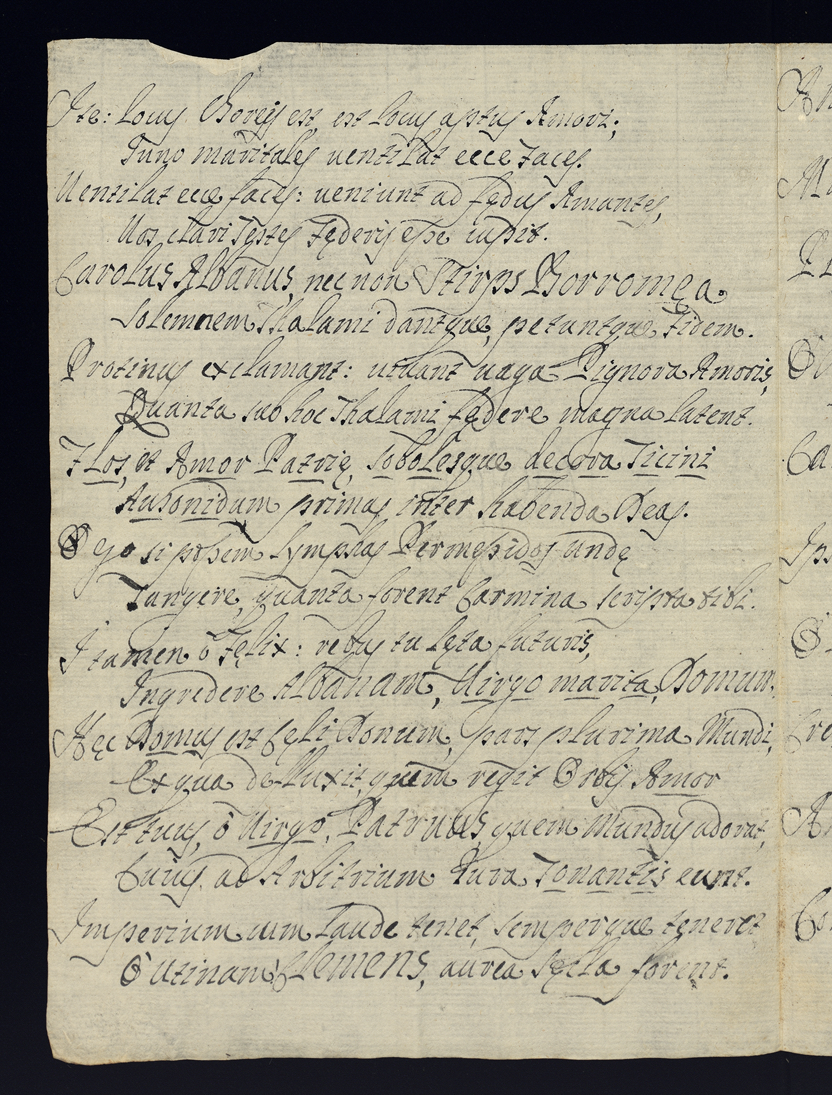 Ite: locus Choreis est, est locus aptus Amori;
Iuno maritales uentilat ecce faces.
Uentilat ecce faces: ueniunt ad fędus Amantes,
Uos clari Testes Fęderis esse iussit.
Carolus Albanus, nec non Stirps Borromęa
Solemnem Thalami dantque, petuntque Fidem.
Protinus exclamant: uiuant uaga Pignora Amoris,
Quanta sub hoc Thalami fędere magna latent.
Flos, et Amor Patrię, sobolesque decora Ticini
Ausonidum primas inter habenda Deas.
O ego si possem Lymphas Permessidos undę
Tangere, quanta forent Carmina scripta tibi.
I tamen ô Fęlix: rebus tu lęta futuris,
Ingredere Albanam, Uirgo marita, Domum.
Hęc Domus est Cęli Donum, pars plurima Mundi,
Ex qua defluxit, quem regit Orbis Amor
Est tuus, ô Uirgo, Patruus, quem Mundus adorat,
Cuius ad Arbitrium Iura Tonantis eunt.
Imperium cum laude tenet, semperque teneret
O Utinam Clemens, aurea Sęcla forent.
An
Ca
Ips
Cre
An